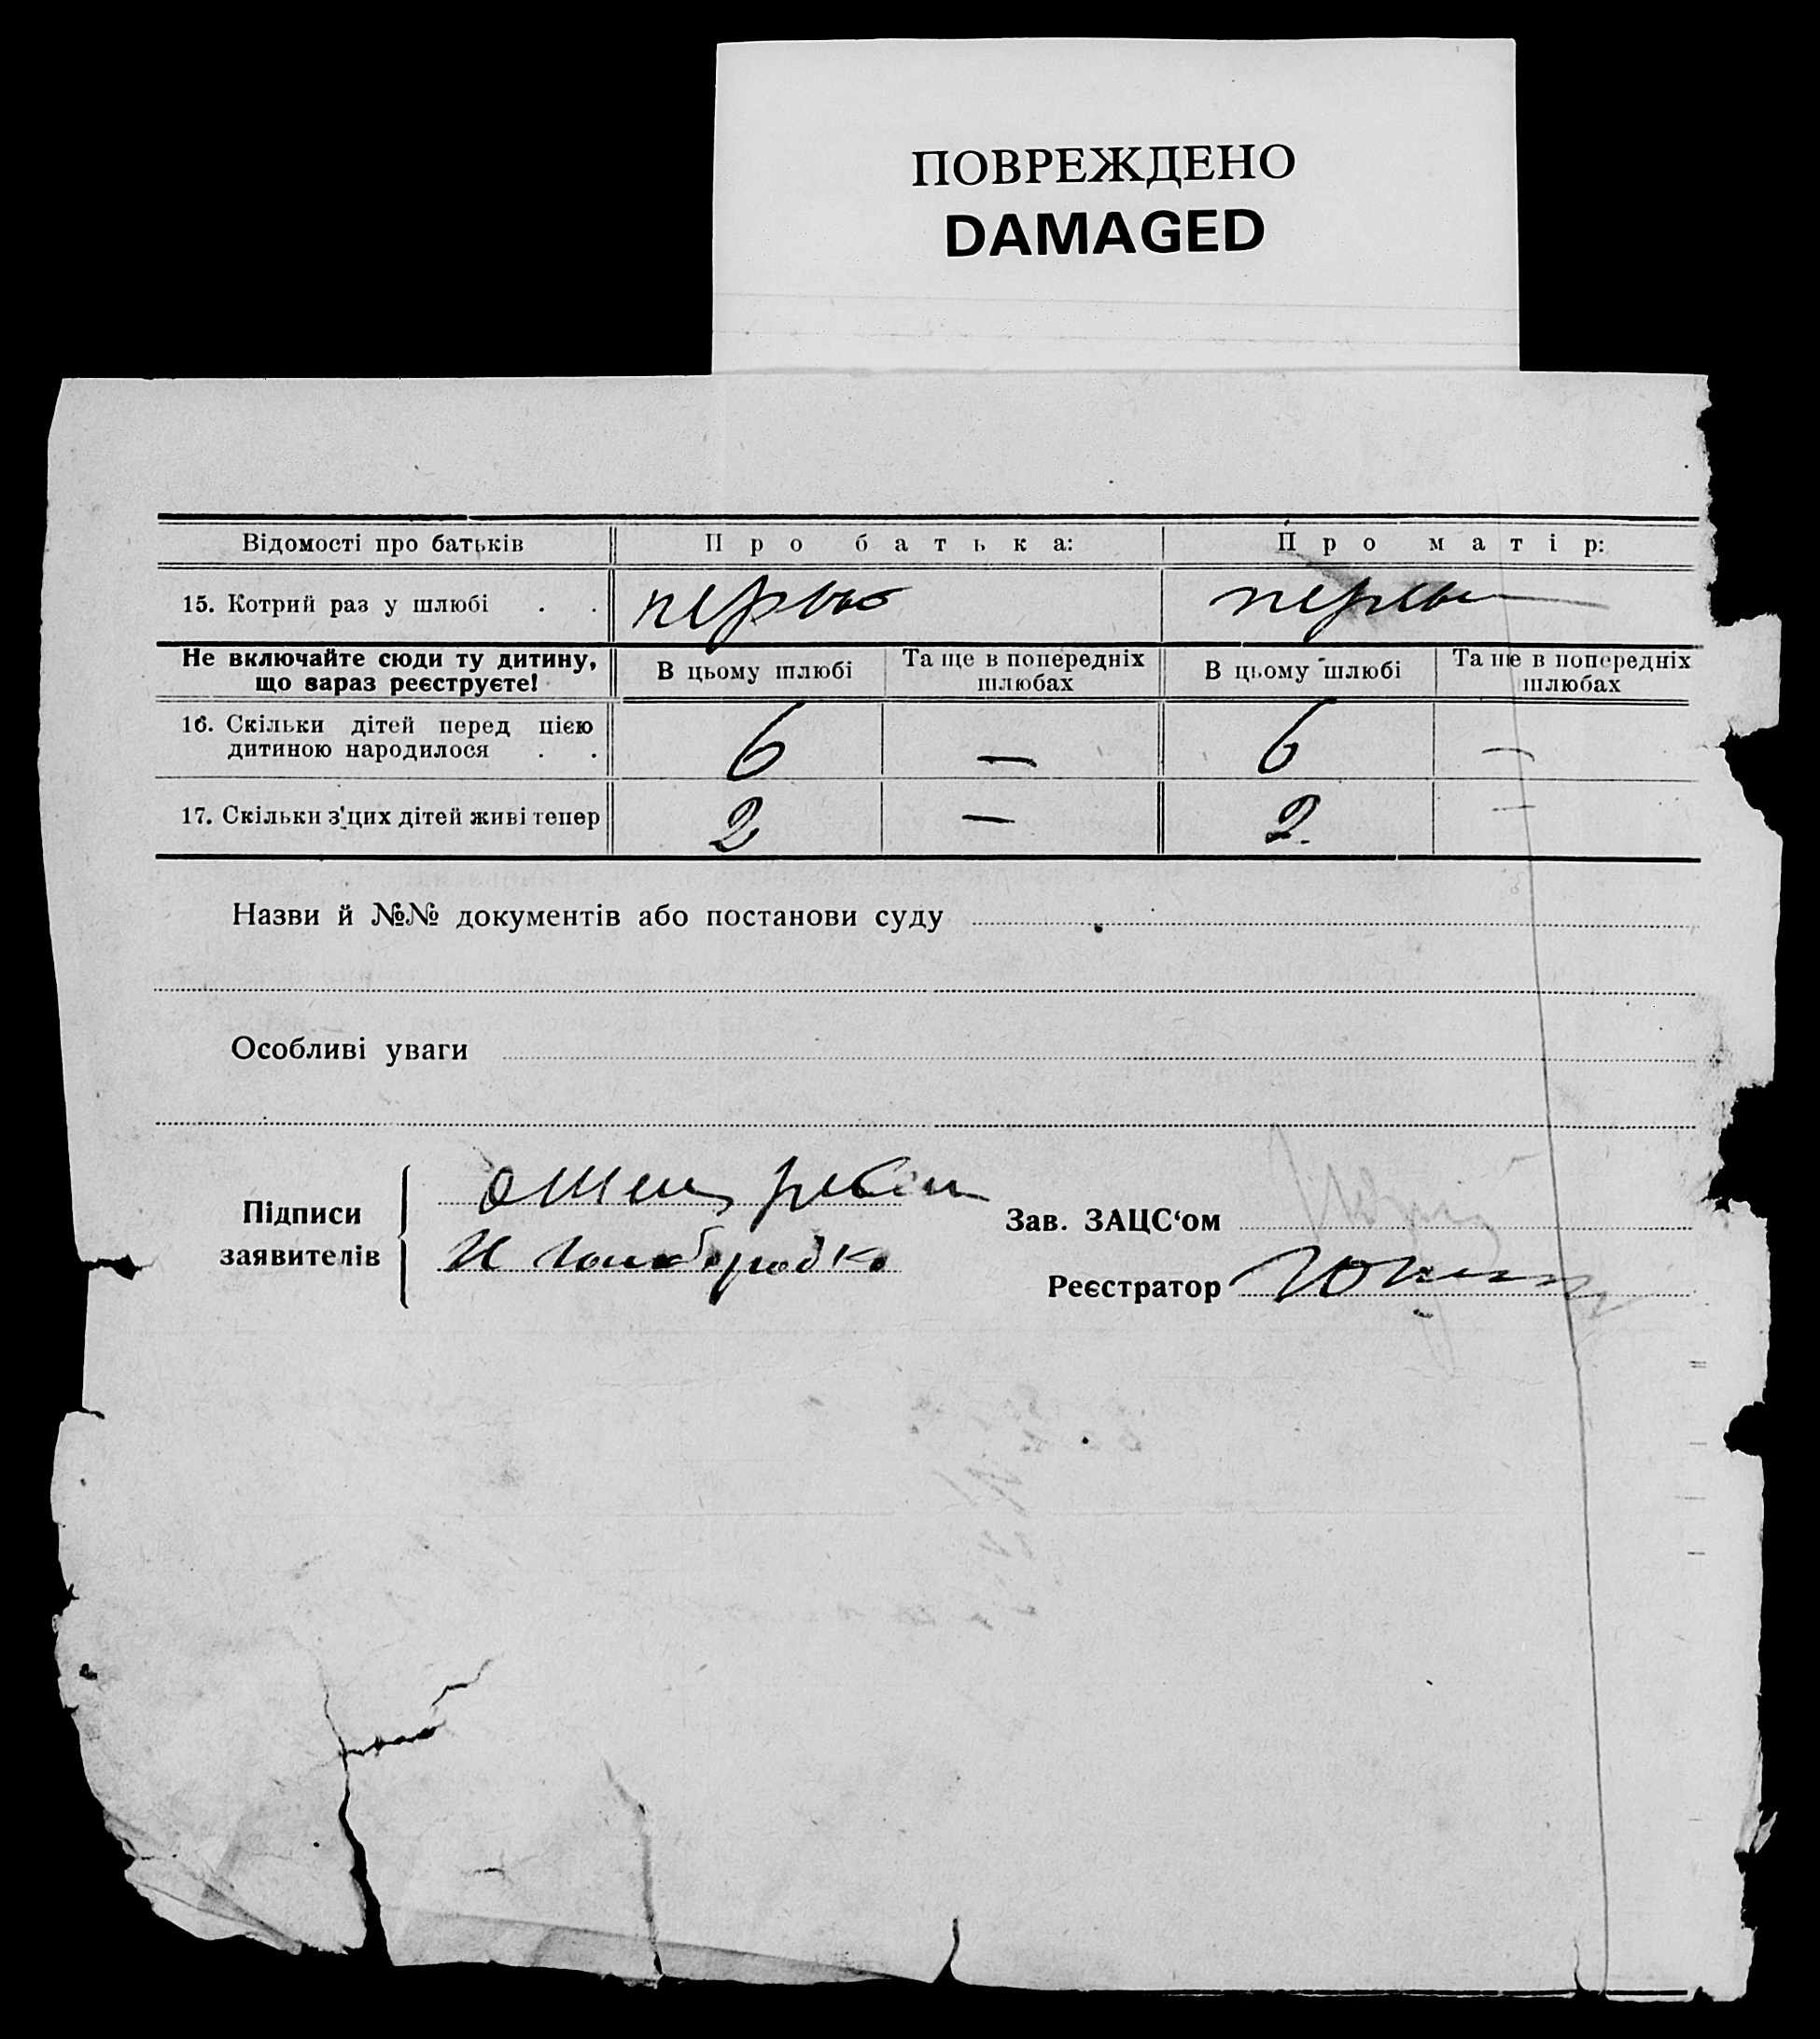 ПОВРЕЖДЕНО
DAMAGED
Відомості про батьків Про батька: Про матір:
15. Котрий раз у шлюбі . .
Не включайте сюди ту дитину, що зараз реєструєте! В цьому шлюбі Та ще в попередніх шлюбах В цьому шлюбі Та ще в попередніх шлюбах
16. Скільки дітей перед цією
дитиною народилося . . 6 — 6 —
17. Скільки з цих дітей живі тепер 2 — 2. —
Назви й №№ документів або постанови суду
Особливі уваги
Підписи
заявителів
Зав. ЗАЦС‘ом
Реєстратор